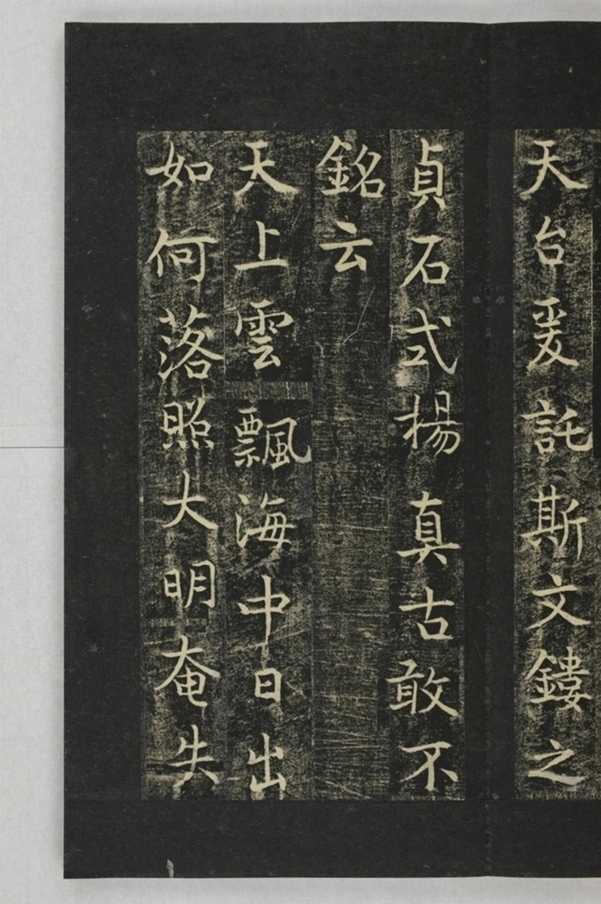 天台爰託斯文鏤之
貞石式揚真古敢不
銘云
天上雲飄海中日出
如何落照大明奄失